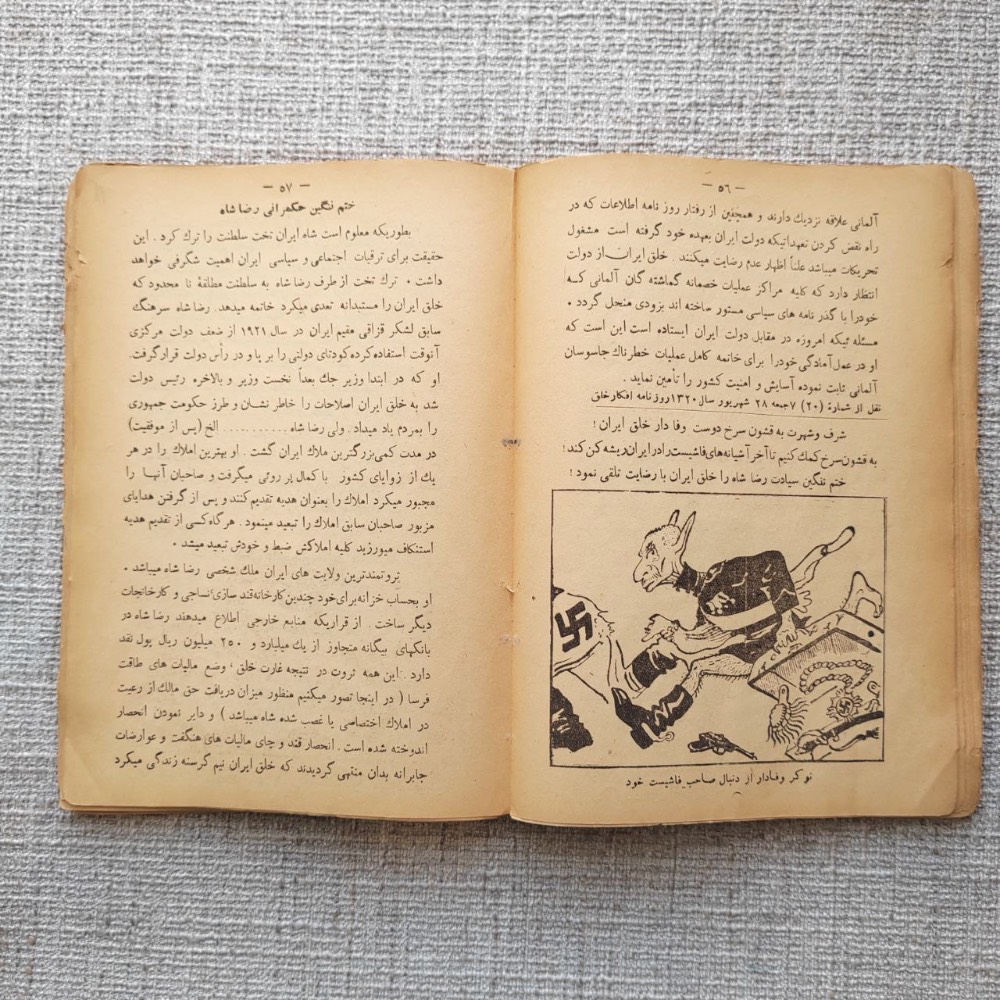 — ٥٦ —
آلمانی علاقه نزدیك دارند و همچنین از رفتار روز نامه اطلاعات که در
راه نقض کردن تعهداتیکه دولت ایران بعهده خود گرفته است مشغول
تحریکات میباشد علناً اظهار عدم رضایت میکنند. خلق ایران از دولت
انتظار دارد که کلیه مراکز عملیات خصمانه گماشته گان آلمانی که
خودرا با گذر نامه های سیاسی مستور ساخته اند بزودی منحل گردد.
مسئله ئیکه امروزه در مقابل دولت ایران ایستاده است این است که
او در عمل آمادگی خودرا برای خاتمه کامل عملیات خطرناك جاسوسان
آلمانی ثابت نموده آسایش و امنیت کشور را تأمین نماید.
نقل از شمارهٔ (۲۰) ۷ جمعه ۲۸ شهریور سال ۱۳۲۰ روز نامه افکار خلق
شرف و شهرت به قشون سرخ دوست وفا دار خلق ایران!
به قشون سرخ کمك کنیم تا آخر آشیانه های فاشیست را در ایران ریشه کن کند!
ختم ننگین سیادت رضا شاه را خلق ایران با رضایت تلقی نمود!
نوکر وفادار از دنبال صاحب فاشیست خود
— ٥٧ —
ختم ننگین حکمرانی رضا شاه
بطوریکه معلوم است شاه ایران تخت سلطنت را ترك کرد. این
حقیقت برای ترقیات اجتماعی و سیاسی ایران اهمیت شگرفی خواهد
داشت. ترك تخت از طرف رضا شاه به سلطنت مطلقهٔ نا محدود که
خلق ایران را مستبدانه تعدی میکرد خاتمه میدهد. رضا شاه سرهنگ
سابق لشکر قزاقی مقیم ایران در سال ۱۹۲۱ از ضعف دولت مرکزی
آنوقت استفاده کرده کودتای دولتی را بر پا و در رأس دولت قرار گرفت.
او که در ابتدا وزیر جنك بعداً نخست وزیر و بالاخره رئیس دولت
شد به خلق ایران اصلاحات را خاطر نشان و طرز حکومت جمهوری
را بمردم یاد میداد. ولی رضا شاه .......... الخ (پس از موفقیت)
در مدت کمی بزرگترین ملاك ایران گشت. او بهترین املاك را در هر
یك از زوایای کشور با کمال پر روئی میگرفت و صاحبان آنها را
مجبور میکرد املاك را بعنوان هدیه تقدیم کنند و پس از گرفتن هدایای
مزبور صاحبان سابق املاك را تبعید مینمود. هر گاه کسی از تقدیم هدیه
استنکاف میورزید کلیه املاکش ضبط و خودش تبعید میشد.
ثروتمندترین ولایت های ایران ملك شخصی رضا شاه میباشد.
او بحساب خزانه برای خود چندین کارخانه قند سازی نساجی و کارخانجات
دیگر ساخت. از قراریکه منابع خارجی اطلاع میدهند رضا شاه در
بانکهای بیگانه متجاوز از یك میلیارد و ۲۵۰ میلیون ریال پول نقد
دارد. این همه ثروت در نتیجه غارت خلق، وضع مالیات های طاقت
فرسا (در اینجا تصور میکنیم منظور میزان دریافت حق مالك از رعیت
در املاك اختصاصی یا غصب شده شاه میباشد) و دایر نمودن انحصار
اندوخته شده است. انحصار قند و چای مالیات های هنگفت و عوارضات
جابرانه بدان منتهی گردیدند که خلق ایران نیم گرسنه زندگی میکرد